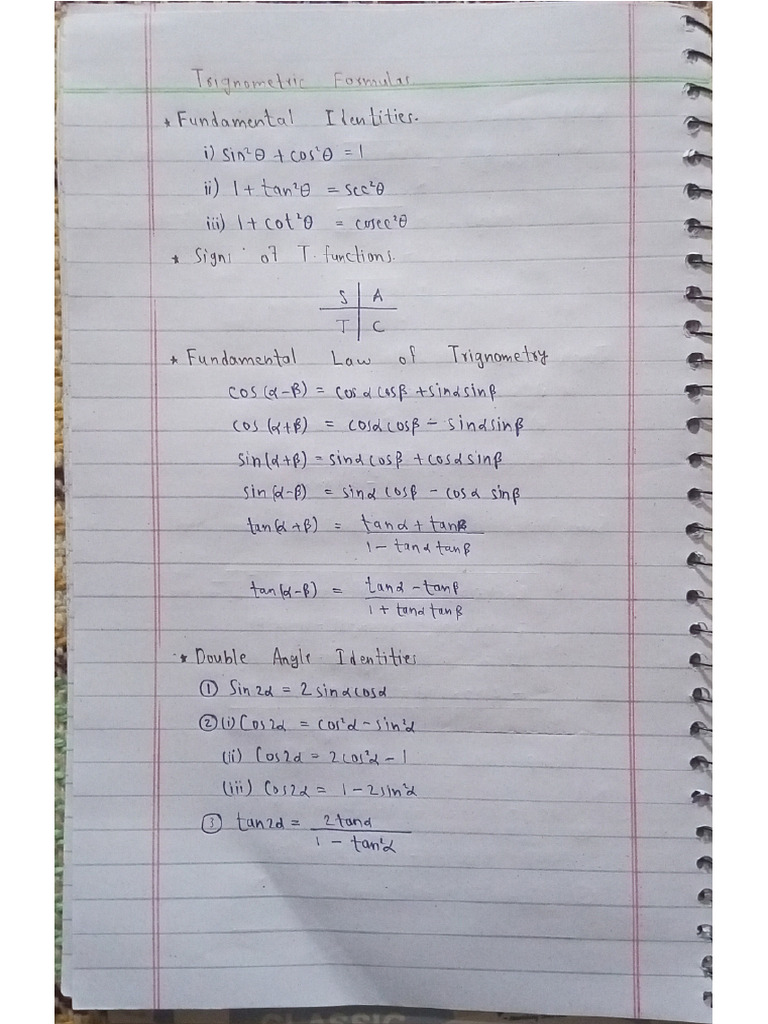 Trignometric Formulas
* Fundamental Identities.
i) sin²θ + cos²θ = 1
ii) 1 + tan²θ = sec²θ
iii) 1 + cot²θ = cosec²θ
* Signs of T. functions.
S | A
T | C
* Fundamental Law of Trignometry
cos (α-β) = cosα cosβ + sinα sinβ
cos (α+β) = cosα cosβ - sinα sinβ
sin(α+β) = sinα cosβ + cosα sinβ
sin(α-β) = sinα cosβ - cosα sinβ
tan(α+β) = tanα + tanβ
1 - tanα tanβ
tan(α-β) = tanα - tanβ
1 + tanα tanβ
* Double Angle Identities
① Sin2α = 2 sinα cosα
② (i) Cos2α = cos²α - sin²α
(ii) Cos2α = 2cos²α - 1
(iii) Cos2α = 1 - 2sin²α
③ tan2α = 2tanα
1 - tan²α
CLASSIC